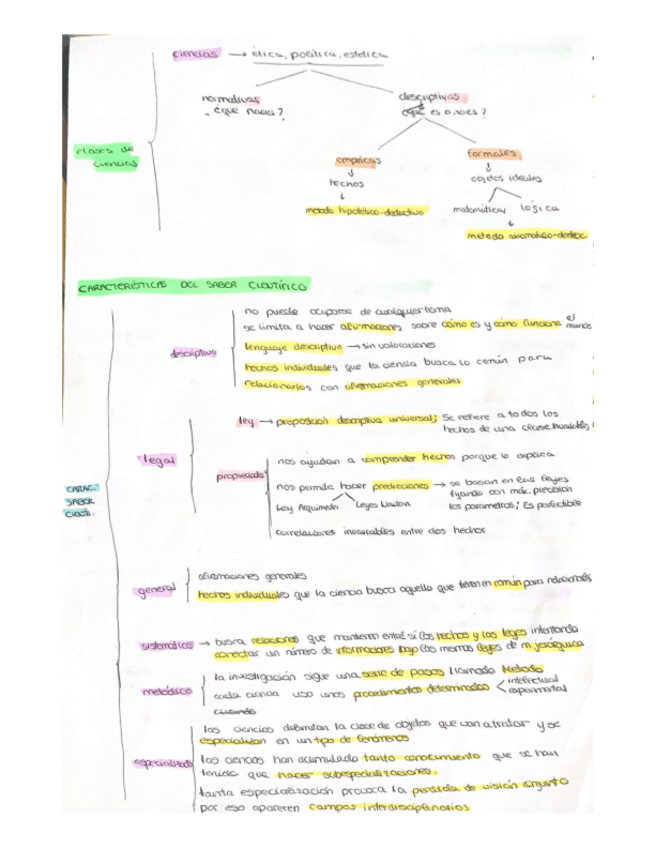 ciencias → ética, política, estética
normativas
descriptivas
¿que haces?
¿que es o no es?
clases de
ciencias
empíricas
formales
hechos
objetos ideales
metodo hipotético-deductivo
matemáticas
lógica
metodo
CARACTERÍSTICAS DEL SABER CIENTÍFICO
no puede ocuparse de cualquier tema
se limita a hacer afirmaciones sobre cómo es y cómo funciona el mundo
descriptivo
lenguaje descriptivo → sin valoraciones
hechos individuales que la ciencia busca lo común para
relacionarlos con afirmaciones generales
ley → proposicion descriptiva universal; Se refiere a todos los
hechos de una clase
legal
nos ayudan a comprender hechos porque lo explica
propiedades
nos permite hacer predicciones → se basan en las leyes
fijando con máx. precisión
Ley Arquímedes
Leyes Newton
los parametros; Es perfectible
correlaciones invariables entre dos hechos
CARAC.
SABER
CIENTÍ.
afirmaciones generales
general
hechos individuales que la ciencia busca aquello que tienen en común para relacionarlos
sistemático → busca relaciones que mantienen entre sí los hechos y las leyes intentando
conectar un número de informaciones bajo las mismas leyes de jerárquica
la investigación sigue una serie de pasos llamado Metodo
metódico
cada ciencia usa unos procedimientos determinados
intelectual
experimental
las ciencias delimitan la clase de objetos que van a tratar y se
especializan en un tipo de fenómenos
especializado
las ciencias han acumulado tanto conocimiento que se han
tenido que hacer subespecializaciones.
tanta especialización provoca la perdida de visión conjunta
por eso aparecen campos interdisciplinarios